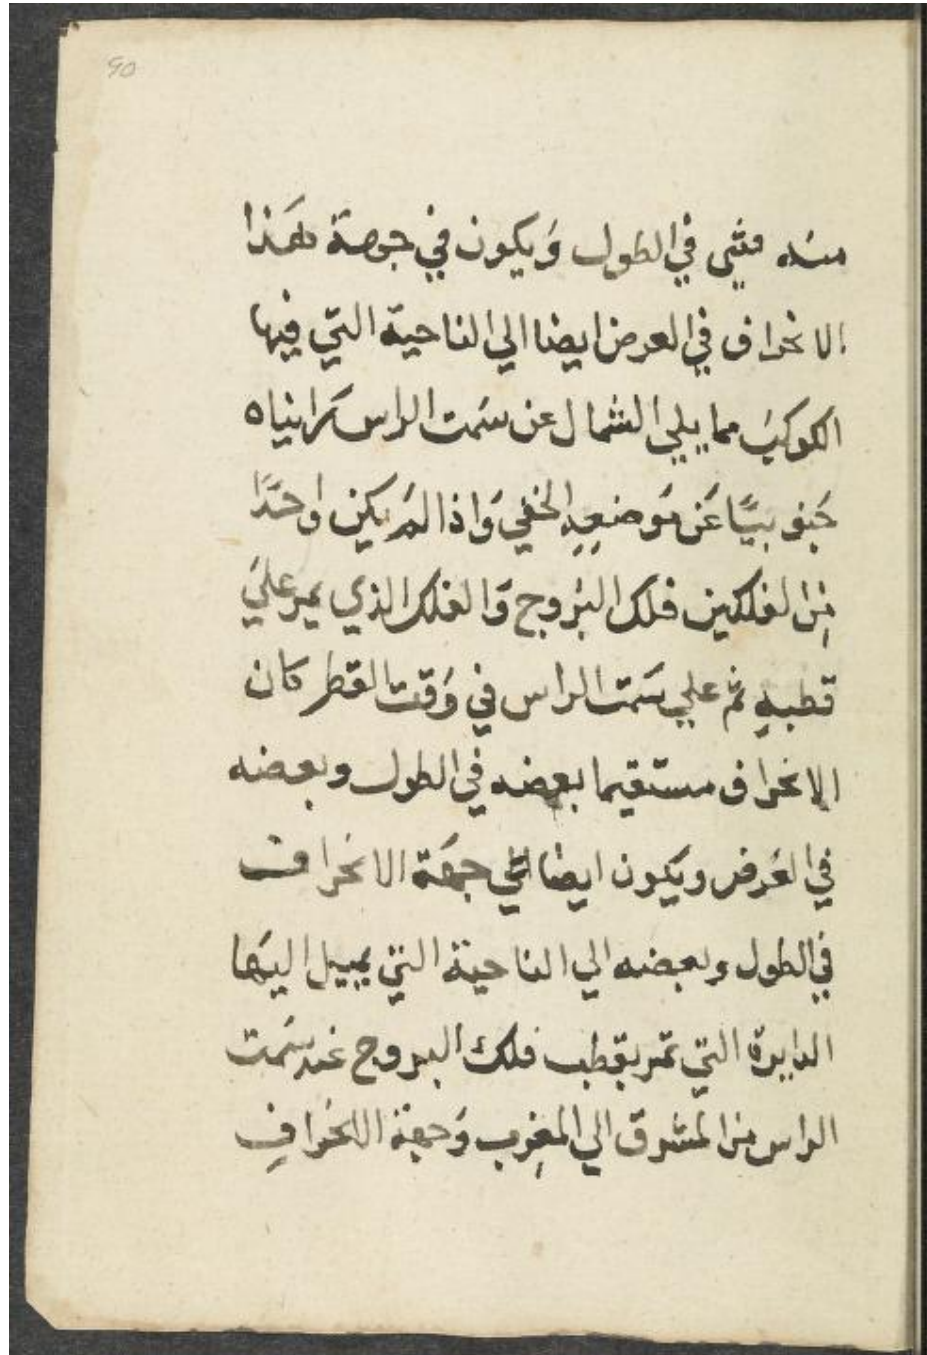 90
منه شي في الطول وَيكون في جهة هَذا
الانحراف في العرض ايضا الي الناحية التي فيها
الكوكبَ مما يلي الشمال عن سَمت الراس
جَنو بيًّا عَن مَوضعِهِ الخفي وَاذا لمَ يكن واحدًا
مِن الفلكين فلك البُروج وَالفلك الذي يمر عليَ
قطبهِ ثم علي سَمت الراس في وَقت القطر كان
الانحراف مستقيما بعضه في الطول وبعضه
في العَرض ويكون ايضا الي جهَة الانحراف
في الطول وبعضه الي الناحية التي يميل اليهَا
الدايرة التي تمر بقطب فلك البروج عند سَمت
الراس من المشرق الي المغرب وَجهة الانحرافِ